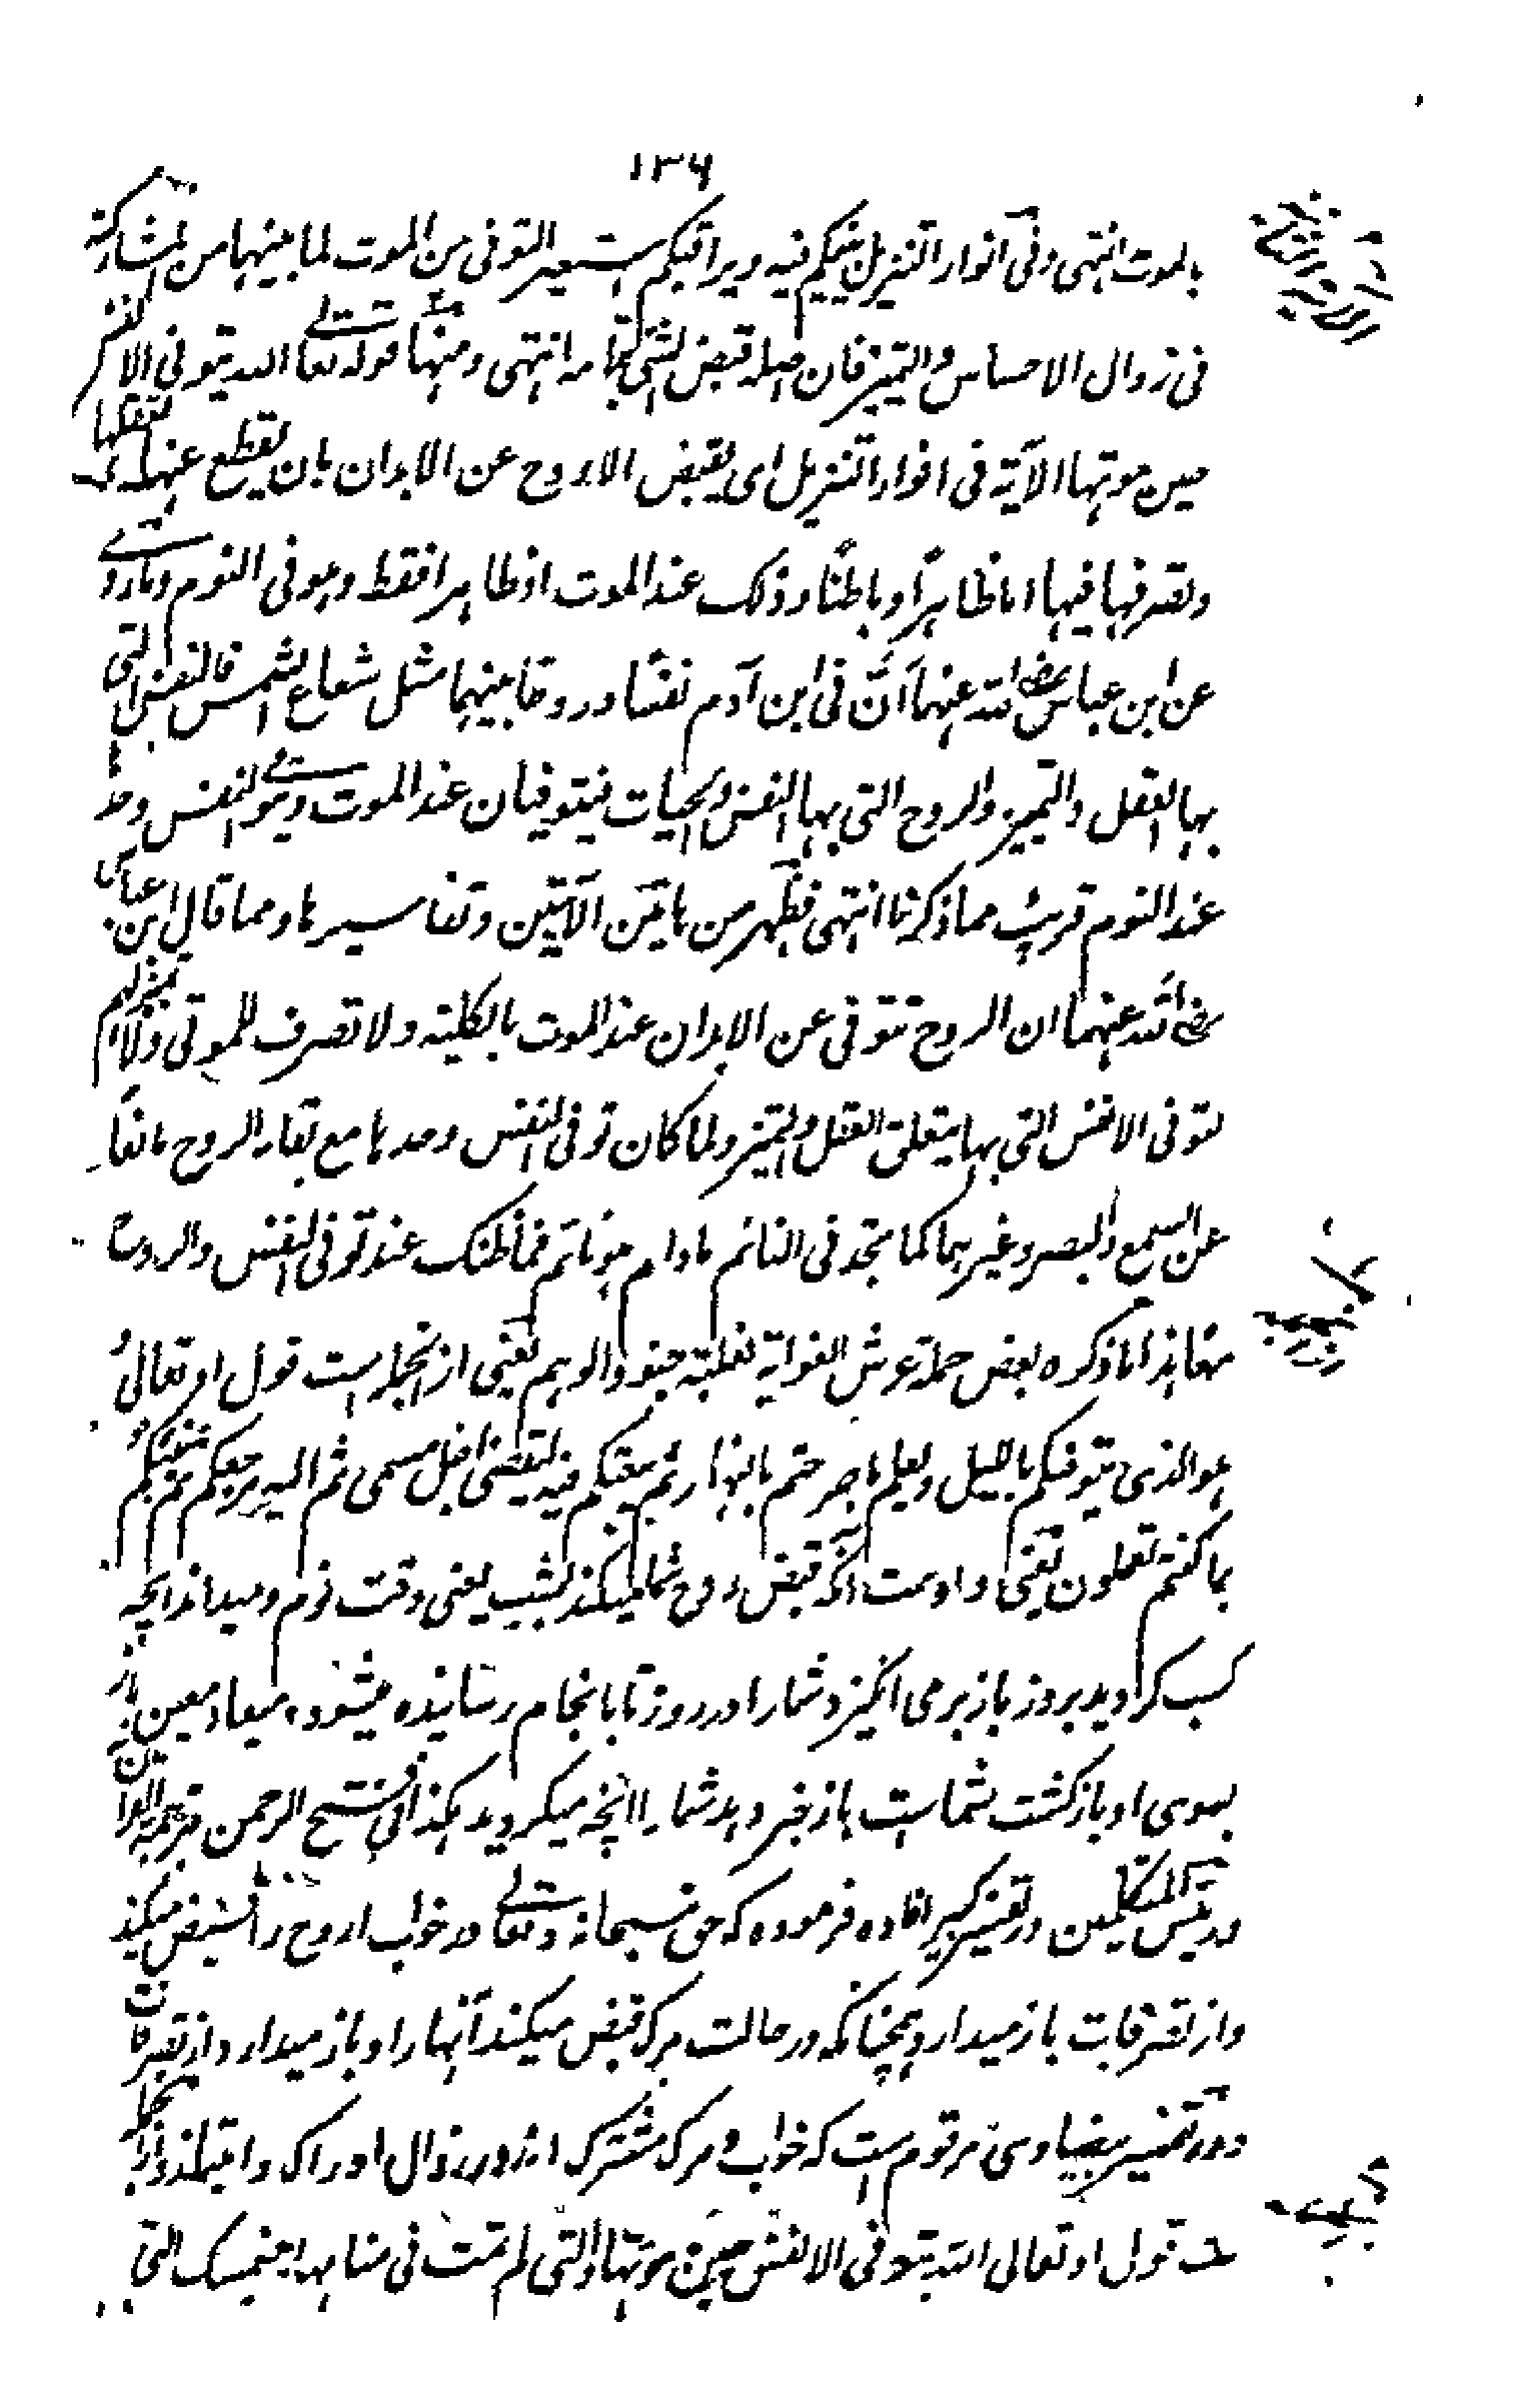 ١٣٦
بالموت انتهى وفى انوار التنزيل ينيمكم فيه ويراقبكم استعير التوفى من الموت لما بينهما من المشاركة
فى زوال الاحساس والتميز فان اصله قبض الشئ بتمامه انتهى ومنها قوله تعالى الله يتوفى الانفس
حين موتها الآية فى انوار التنزيل اى يقبض الاروح عن الابدان بان يقطع عنها تعلقها
وتصرفها فيها اما ظاهراً وباطناً وذلك عند الموت او ظاهرا فقط وهو فى النوم وما روى
عن ابن عباس رضى الله عنهما انّ فى ابن آدم نفسًا وروحا بينهما مثل شعاع الشمس فالنفس التى
بها العقل والتميز والروح التى بها النفس والحيات فيتوفيان عند الموت ويتوفى النفس وحدها
عند النوم قريب مما ذكرنا انتهى فظهر من هاتين الآيتين وتفاسيرها ومما قال ابن عباس
رضى الله عنهما ان الروح تتوفى عن الابدان عند الموت بالكلية ولا تصرف للموتى
تتوفى الانفس التى بها يتعلق العقل والتميز ولما كان توفى النفس وحدها مع بقاء الروح مانعاً
عن السمع والبصر وغيرهما كما تجد فى النائم مادام هو نائم فما ظنك عند توفى النفس والروح
معا هذا ما ذكره بعض حملة عرش الغواية لغلبة جنود الوهم يعنى ازانجمله است قول او تعالىٰ
هو الذى يتوفكم بالليل ويعلم ما جرحتم بالنهار ثم يبعثكم فيه ليقضى اجل مسمى ثم اليه مرجعكم ثم ينبئكم
بما كنتم تعملون يعنى و اوست آنكه قبض روح شما ميكند بشب يعنى وقت نوم و ميداند آنچه
كسب كرده ايد بروز باز برمى انگيزد شما را در روز تا بانجام رسانيده ميشود ميعاد معين باز
بسوى او بازگشت شماست باز خبر دهد شما را بآنچه ميكرديد هكذا فى فتح الرحمن ترجمة القرآن
و رئيس المتكلمين در تفسير كبير افاده فرموده كه حق سبحانه وتعالى در خواب اروح را قبض ميكند
و از تصرفات باز ميدارد همچنانكه در حالت مرگ قبض ميكند آنها را و باز ميدارد از تصرفات
و در تفسير بيضاوى مرقوم است كه خواب و مرگ مشترك اند در زوال ادراك و امتياز و ازانجمله
است قول او تعالى الله يتوفى الانفس حين موتها والتى لم تمت فى منامها فيمسك التى